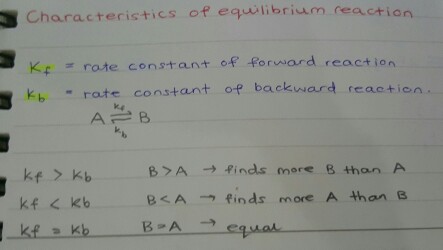 Characteristics of equilibrium reaction
Kf = rate constant of forward reaction
Kb = rate constant of backward reaction.
kf
A ⇌ B
kb
kf > kb B > A → finds more B than A
kf < kb B < A → finds more A than B
kf = kb B = A → equal